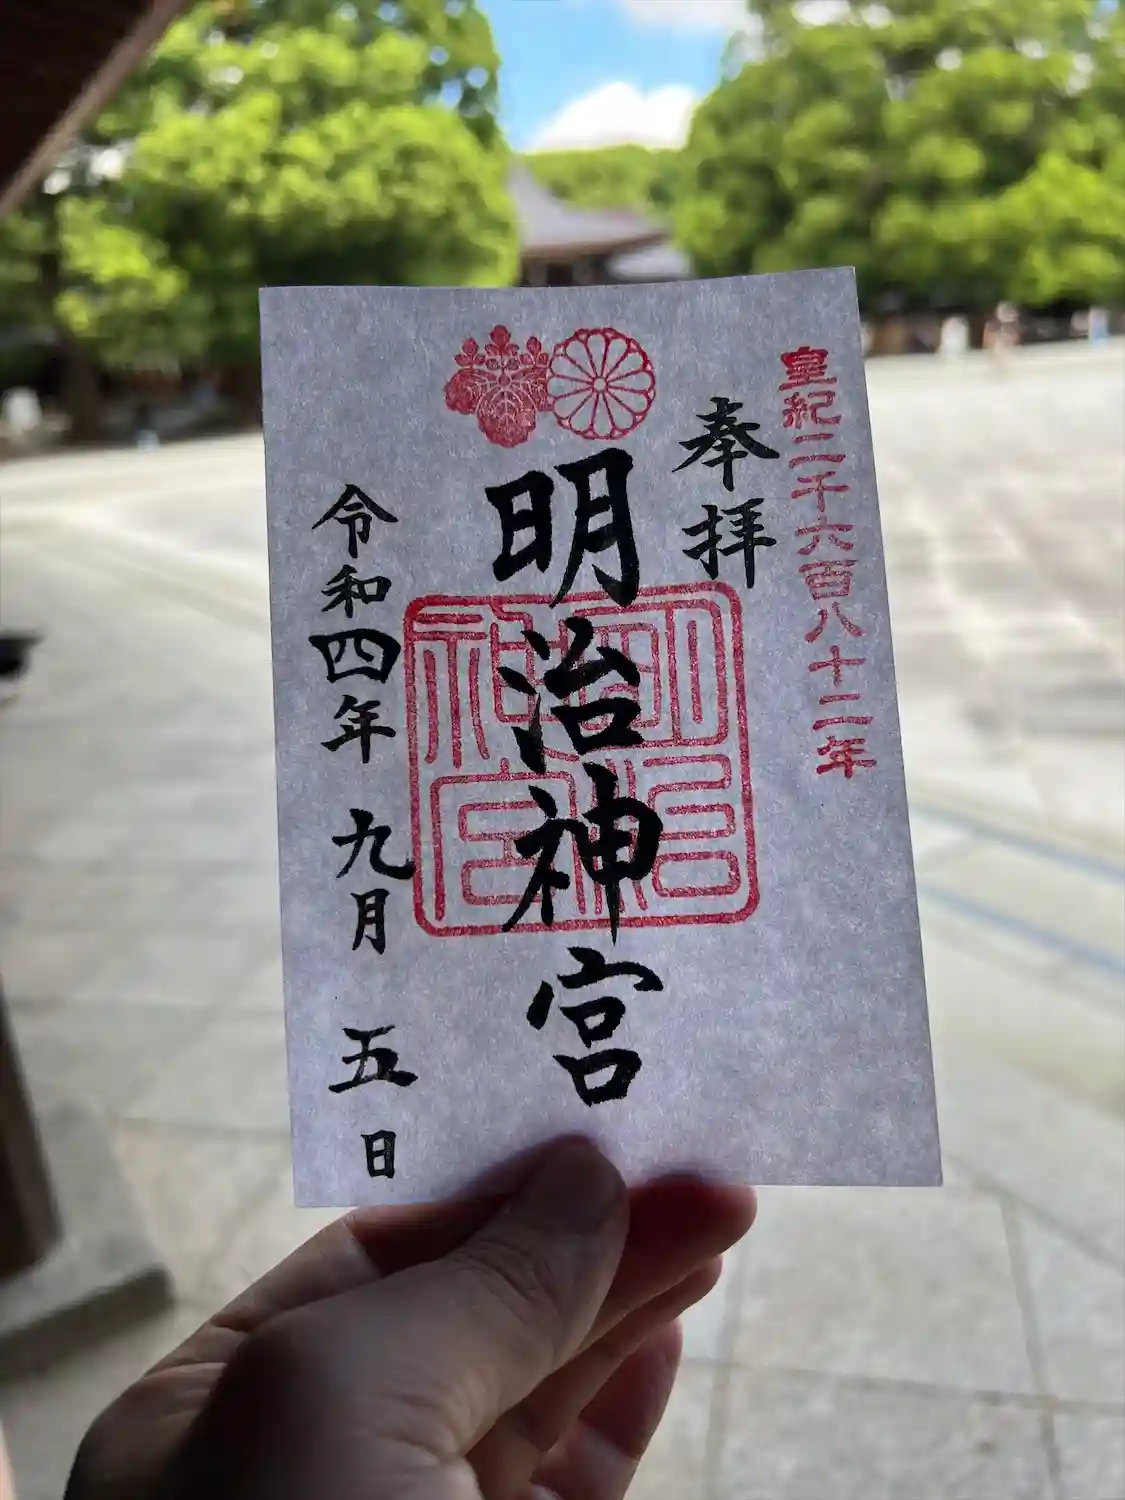 皇紀二千六百八十二年
奉拝
明治神宮
明治神宮
令和四年 九月 五日